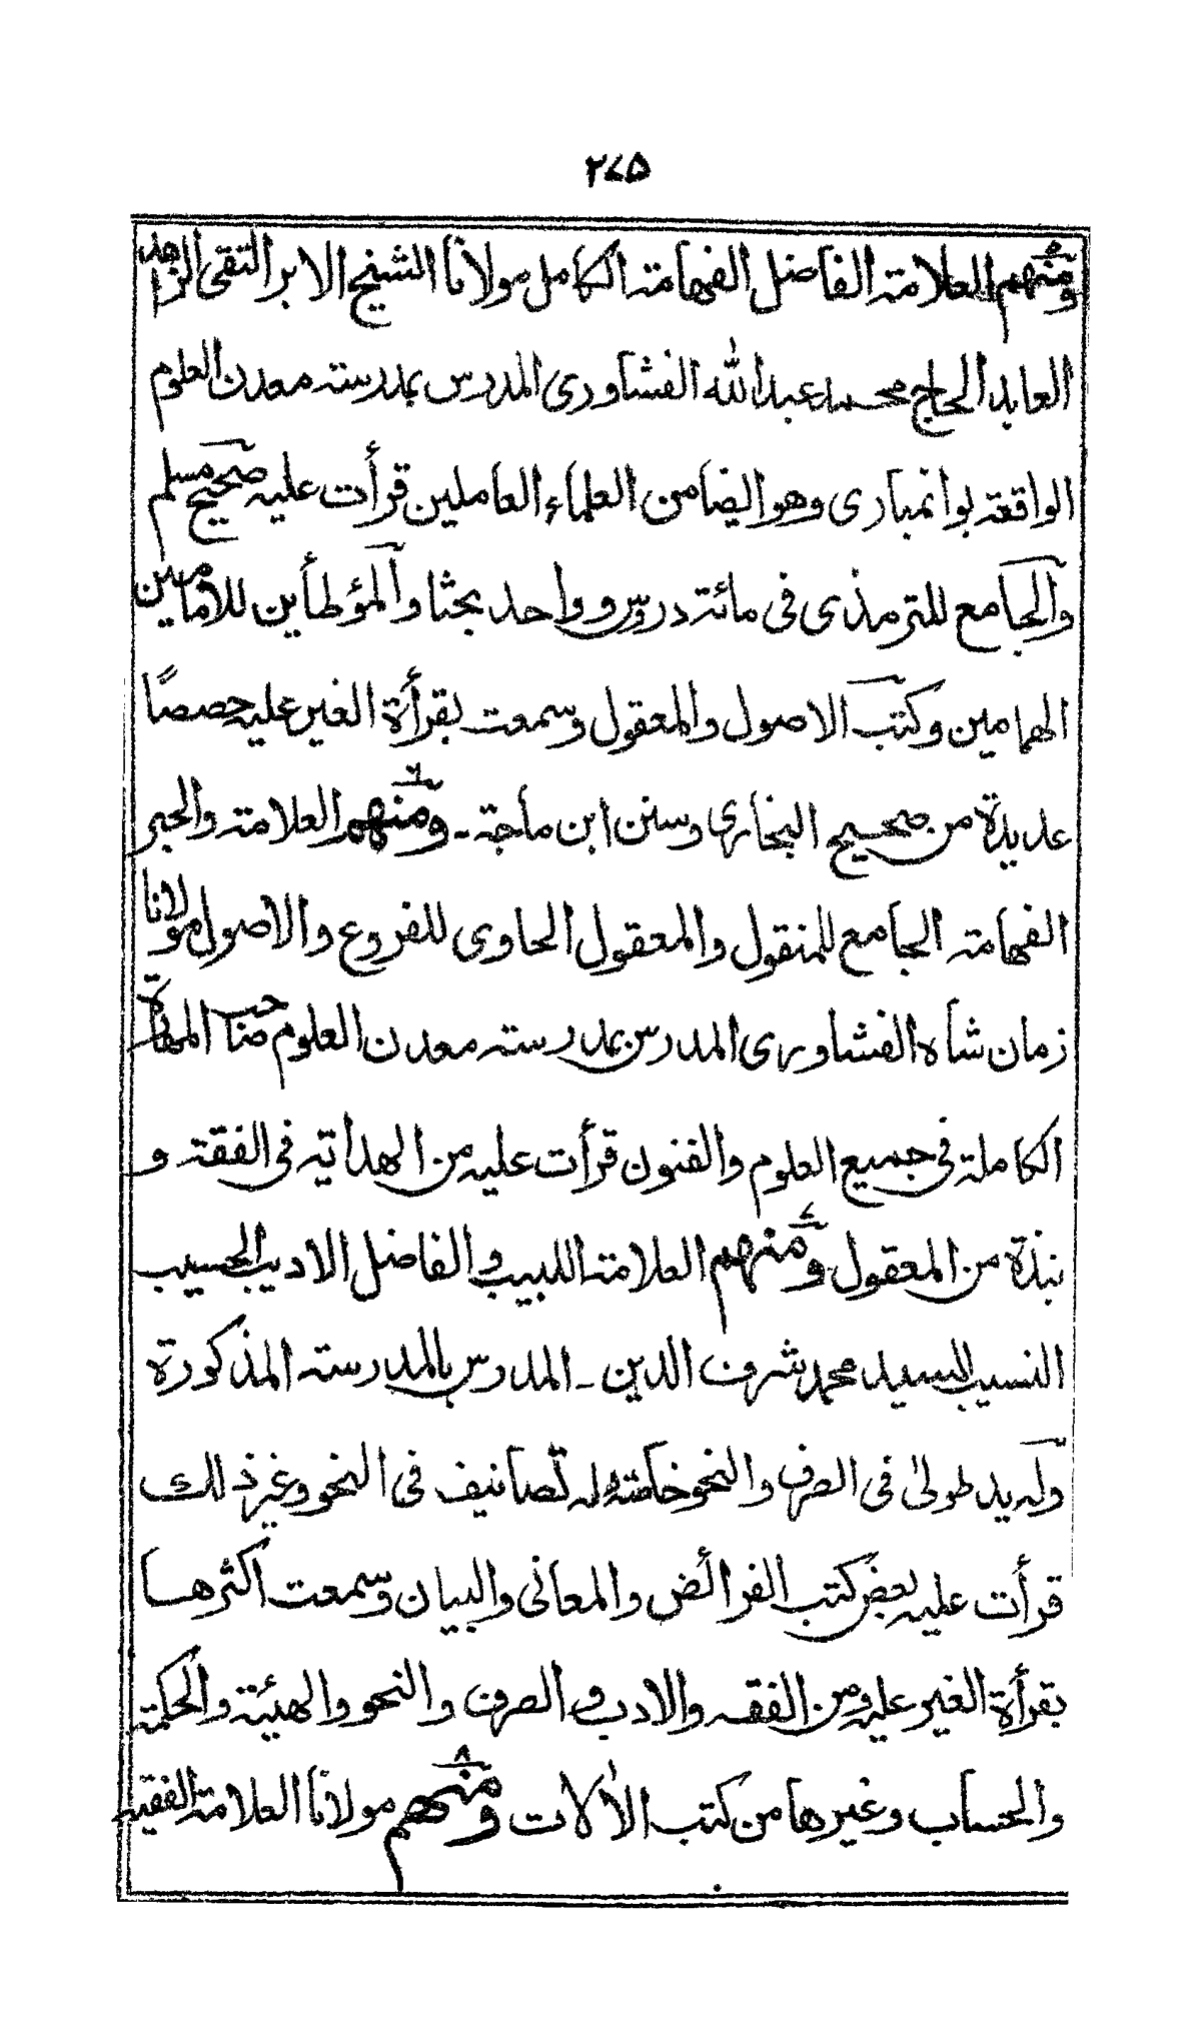 ۲۷۵
ومنهم العلامة الفاضل الفهامة الكامل مولانا الشيخ الابر التقى الزاهد
العابد الحاج محمد عبدالله الفشاورى المدرس بمدرسة معدن العلوم
الواقعة بوانمبارى وهو ايضا من العلماء العاملين قرأت عليه صحيح مسلم
والجامع للترمذى فى مائة دروس وواحد بحثا والمؤطأين للامامين
الهمامين وكتب الاصول والمعقول وسمعت بقرأة الغير عليه حصصًا
عديدة من صحيح البخارى وسنن ابن ماجة ـ ومنهم ۶ العلامة والحبر
الفهامة الجامع للمنقول والمعقول الحاوى للفروع والاصول مولانا
زمان شاه الفشاورى المدرس بمدرسة معدن العلوم صاحب المهارة
الكاملة فى جميع العلوم والفنون قرأت عليه من الهداية فى الفقه و
نبذة من المعقول ومنهم ۷ العلامة اللبيب والفاضل الاديب الحسيب
النسيب السيد محمد شرف الدين ـ المدرس بالمدرسة المذكورة
وله يد طولىٰ فى الصرف والنحو خاصة وله تصانيف فى النحو وغير ذلك
قرأت عليه بعض كتب الفرائض والمعانى والبيان وسمعت اكثرها
بقرأة الغير عليه ومن الفقه والادب والصرف والنحو والهيئة والحكمة
والحساب وغيرها من كتب الاٰلات ومنهم ۸ مولانا العلامة الفقيه